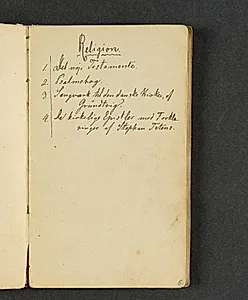 Religion.
1 Det nye Testamente.
2. Psalmebog.
3 Sangværk til den danske Kirke, af
Grundtvig.
4. De kirkelige Epistler med Forkla-
ringer af Stephan